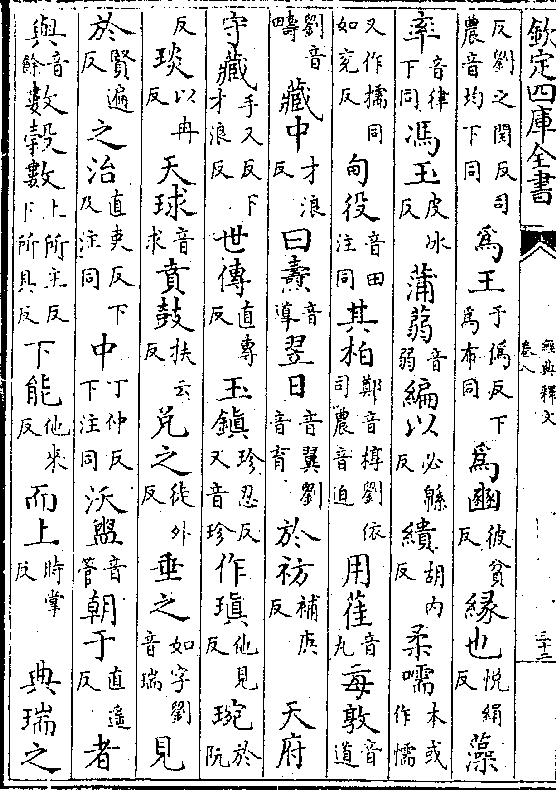 欽定四庫全書
經典釋文
卷八
三十三
反劉之閏反司農音均下同為王于偽反下為布同為豳彼貧反緣也悅絹反藻
率音律下同馮玉皮冰反蒲蒻音弱編以必緜反繢胡內反柔嚅本或作懦
又作擩同如兗反甸役音田注同其柏鄭音椁劉依司農音迫用萑音丸每敦音道
劉音疇藏中才浪反曰燾音導翌日音翼劉音育於祊補庚反天府
守藏手又反下才浪反世傳直專反玉鎮珍忍反又音珍作瑱他見反琬於阮
反琰以冉反天球音求賁鼓扶云反兌之徒外反垂之如字劉音瑞見
於賢遍反之治直吏反下及注同中丁仲反下注同沃盥音管朝于直遥反者
與音餘數穀數上所主反下所具反下能他來反而上時掌反典瑞之